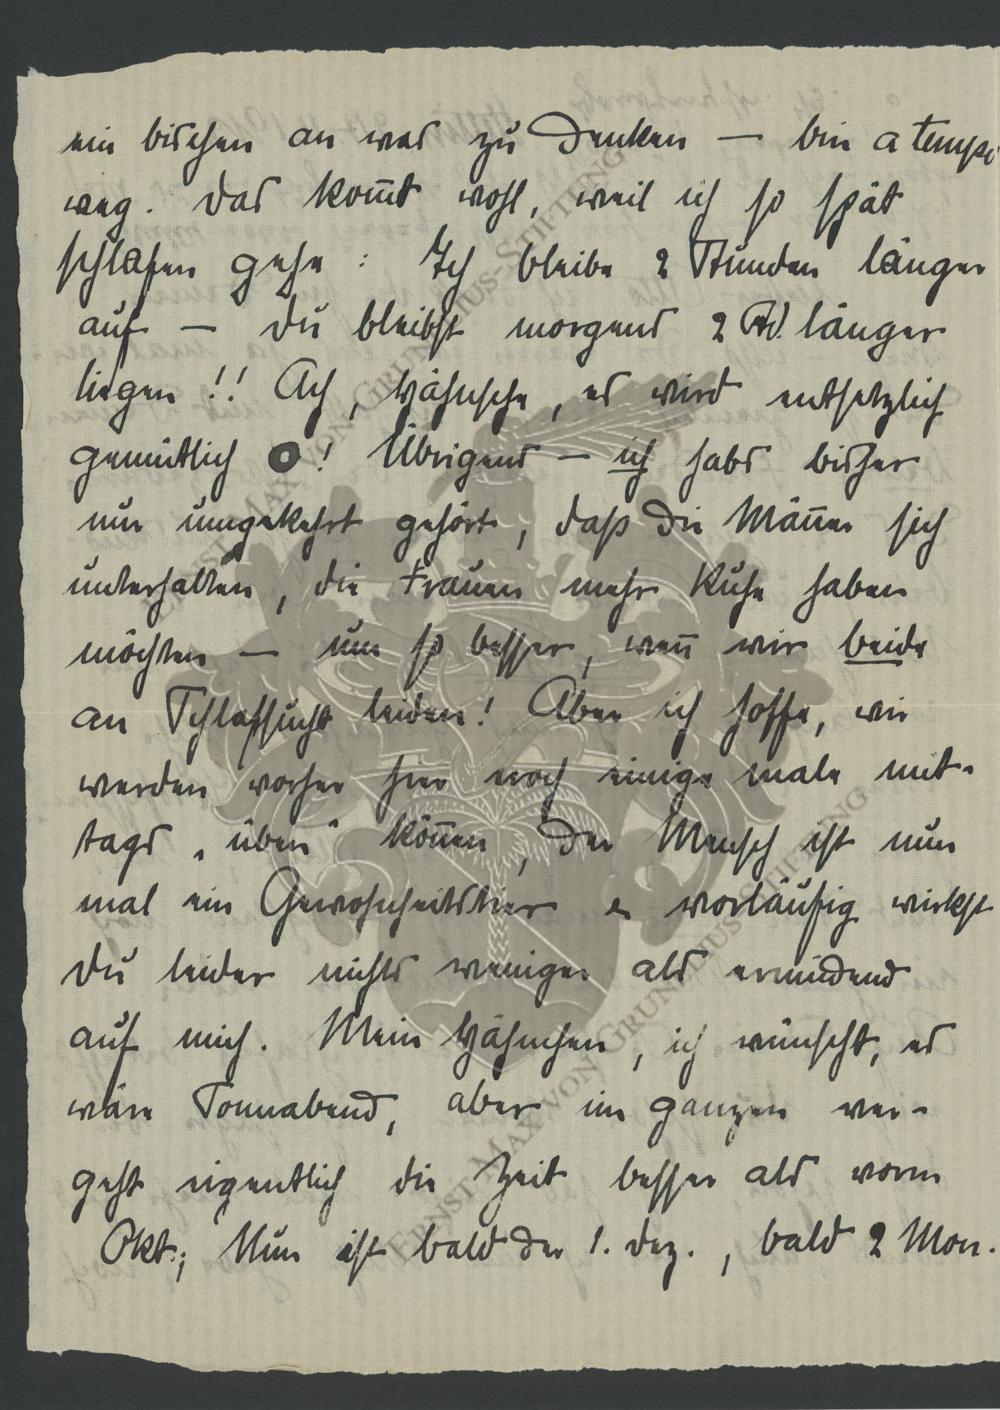 ein bischen an was zu denken — bin a tempo
weg. Das kom̄t wohl, weil ich so spät
schlafen gehe: Ich bleibe 2 Stunden länger
auf — Du bleibst morgens 2 Std. länger
liegen!! Ach, Hähnsche, es wird entsetzlich
gemütlich O! Übrigens — ich habs bisher
nur umgekehrt gehört, daß die Män̄er sich
unterhalten, die Frauen mehr Ruhe haben
möchten — um so besser, wen̄ wir beide
an Schlafsucht leiden! Aber ich hoffe, wir
werden vorher hier noch einige male mit-
tags „üben" kön̄en, der Mensch ist nun
mal ein Gewohnheitstier & vorläufig wirkst
Du leider nichts weniger als ermüdend
auf mich. Mein Hähnchen, ich wünscht, es
wäre Sonnabend, aber im ganzen ver-
geht eigentlich die Zeit besser als vorm
Okt.; Nun ist bald der 1. Dez., bald 2 Mon.
ERNST MAX VON GRUNELIUS-STIFTUNG
ERNST MAX VON GRUNELIUS-STIFTUNG